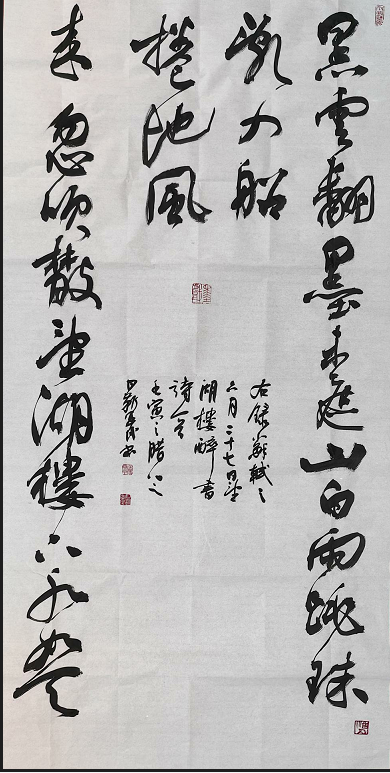 黑雲翻墨未遮山白雨跳珠
亂入船
捲地風
來忽吹散望湖樓下水如天
右錄蘇軾之
六月二十七日望
湖樓醉書
詩一首
壬寅之臘八之
日